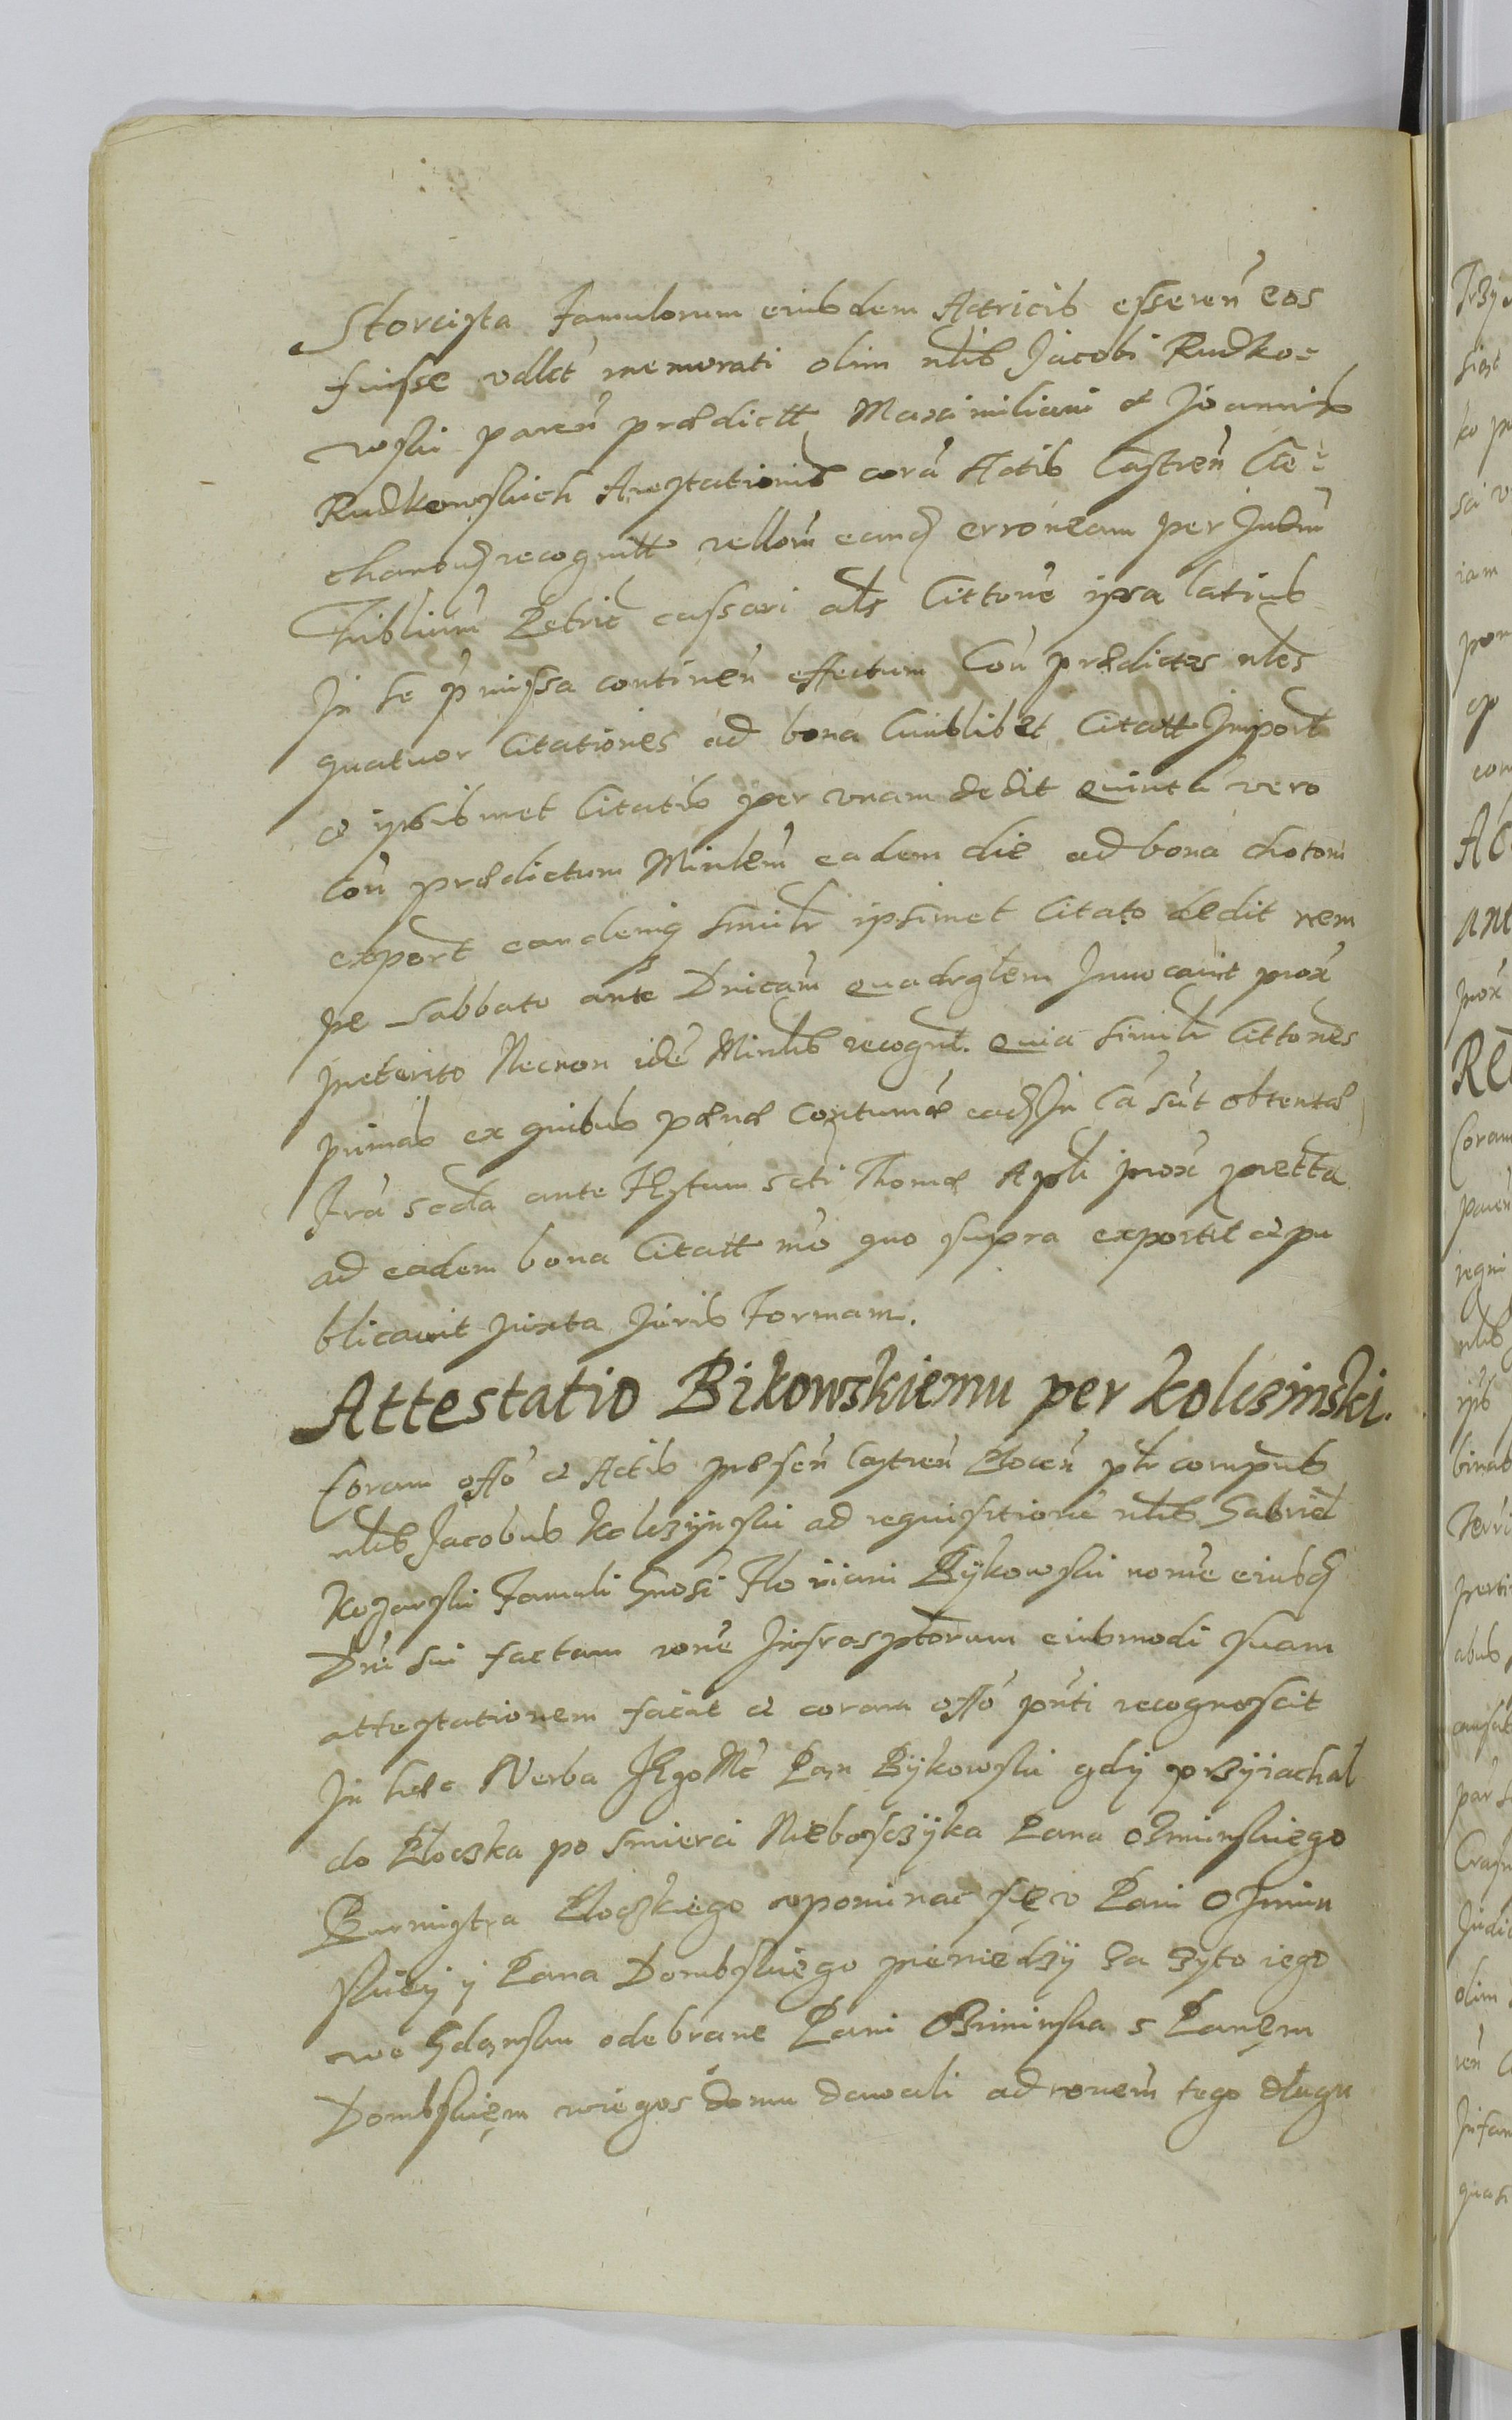 Storcista Famulorum eiusdem Actricis asseren eos
fuisse vallet memorati olim nlis Jacobi Rudko=
wski paren prædictt Maximiliani et Joannis
Rudkowskich Arestationis corã Actis Castren Cie=
chanouꝫ recognitt rellom eamꝗ erroneam per Judm
Triblium Petric cassari als Cittone ipsa latius
In se p̃missa continen effectum Con prædictos nles
quatuor Citationes ad bona cuiuslibet Citatt Import
et ipsismet Citatis per vnam dedit Quinta vero
Con prædictum Minlem eadem die ad bona chotom
export eandemq similr ipsimet Citato dedit nem
pe Sabbato ante Dnicam quadrglem Inuocauit prox
preterito Necnon ide Minlis recognt. quia similr Cittones
primas ex quibus pænæ Contumæ eadꝫ In Ca sut obtentæ
Fra scda ante Festum scti Thomæ Apli prox pretta
ad eadem bona Citatt mo quo supra exportt et pu
blicauit Juxta Juris Formam.
Attestatio Bikowskiemu per Kolczinski.
Coram offo et Actis præsen Castren Plocen plr comprns
nlis Jacobus Kolczÿnski ad requisitione nlis Gabriel
Kozarski Famuli Gnosi Floriani Bÿkowski nome eiusdꝫ
Dni sui factam rone Infrasptorum eiusmodi suam
attestationem facit et coram offo pnti recognoscit
In hæc Verba JEgo Mc Pan Bÿkowski gdÿ przÿiachał
do Płoczka po smierci Nieboszczÿka Pana Ozminskiego
Burmistra Płoczkiego vpominac się v Pani Ozmin
skieÿ ÿ Pana Dombskiego pieniędzÿ za zÿto iego
we Gdansku odebrane Pani Ozminska s Panęm
Dombskięm wiegos domu dawali ad ronem tego długu